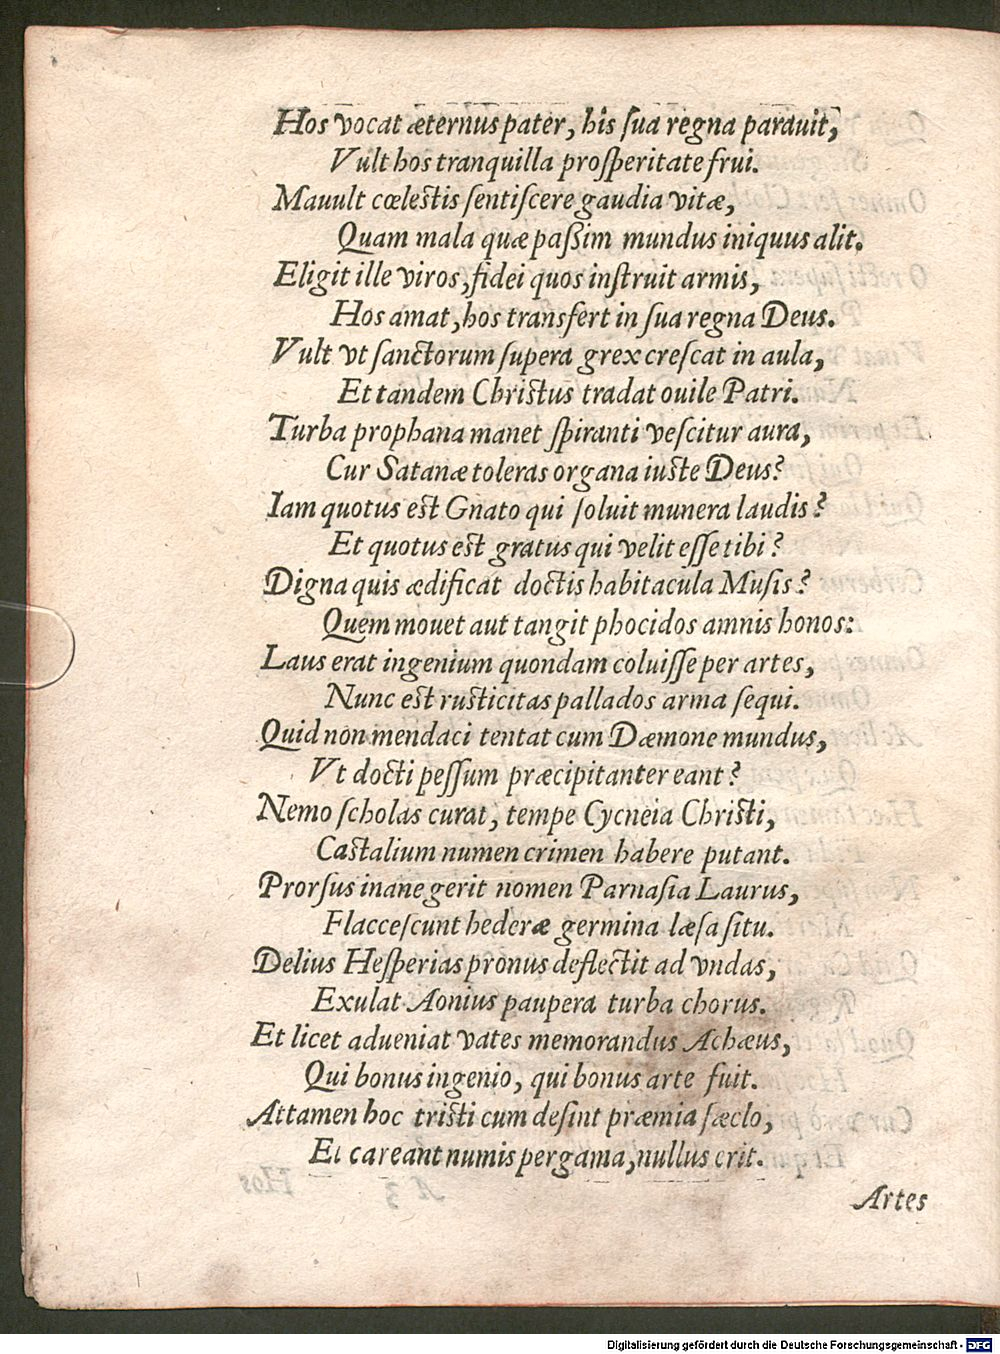 Hos vocat æternus pater, his ſua regna parauit,
Vult hos tranquilla proſperitate frui.
Mauult cœleſtis ſentiſcere gaudia vitæ,
Quam mala quæ paßim mundus iniquus alit.
Eligit ille viros, fidei quos inſtruit armis,
Hos amat, hos transfert in ſua regna Deus.
Vult vt ſanctorum ſupera grex creſcat in aula,
Et tandem Chriſtus tradat ouile Patri.
Turba prophana manet ſpiranti veſcitur aura,
Cur Satanæ toleras organa iuſte Deus?
Iam quotus eſt Gnato qui ſoluit munera laudis?
Et quotus eſt gratus qui velit eſſe tibi?
Digna quis ædificat doctis habitacula Muſis?
Quem mouet aut tangit phocidos amnis honos:
Laus erat ingenium quondam coluiſſe per artes,
Nunc eſt ruſticitas pallados arma ſequi.
Quid non mendaci tentat cum Dæmone mundus,
Vt docti peſſum præcipitanter eant?
Nemo ſcholas curat, tempe Cycneia Chriſti,
Caſtalium numen crimen habere putant.
Prorſus inane gerit nomen Parnaſia Laurus,
Flacceſcunt hederæ germina læſa ſitu.
Delius Heſperias pronus deflectit ad vndas,
Exulat Aonius paupera turba chorus.
Et licet adueniat vates memorandus Achæus,
Qui bonus ingenio, qui bonus arte fuit.
Attamen hoc triſti cum deſint præmia ſæclo,
Et careant numis pergama, nullus erit.
Artes
Digitalisierung gefördert durch die Deutsche Forschungsgemeinschaft - DFG